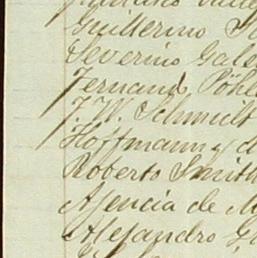 Guillermo
Severino Gals
Fernand Pöhl
J. W. Schmidt
Hoffmann y
Roberto Smith
Ajencia de
Alejandro